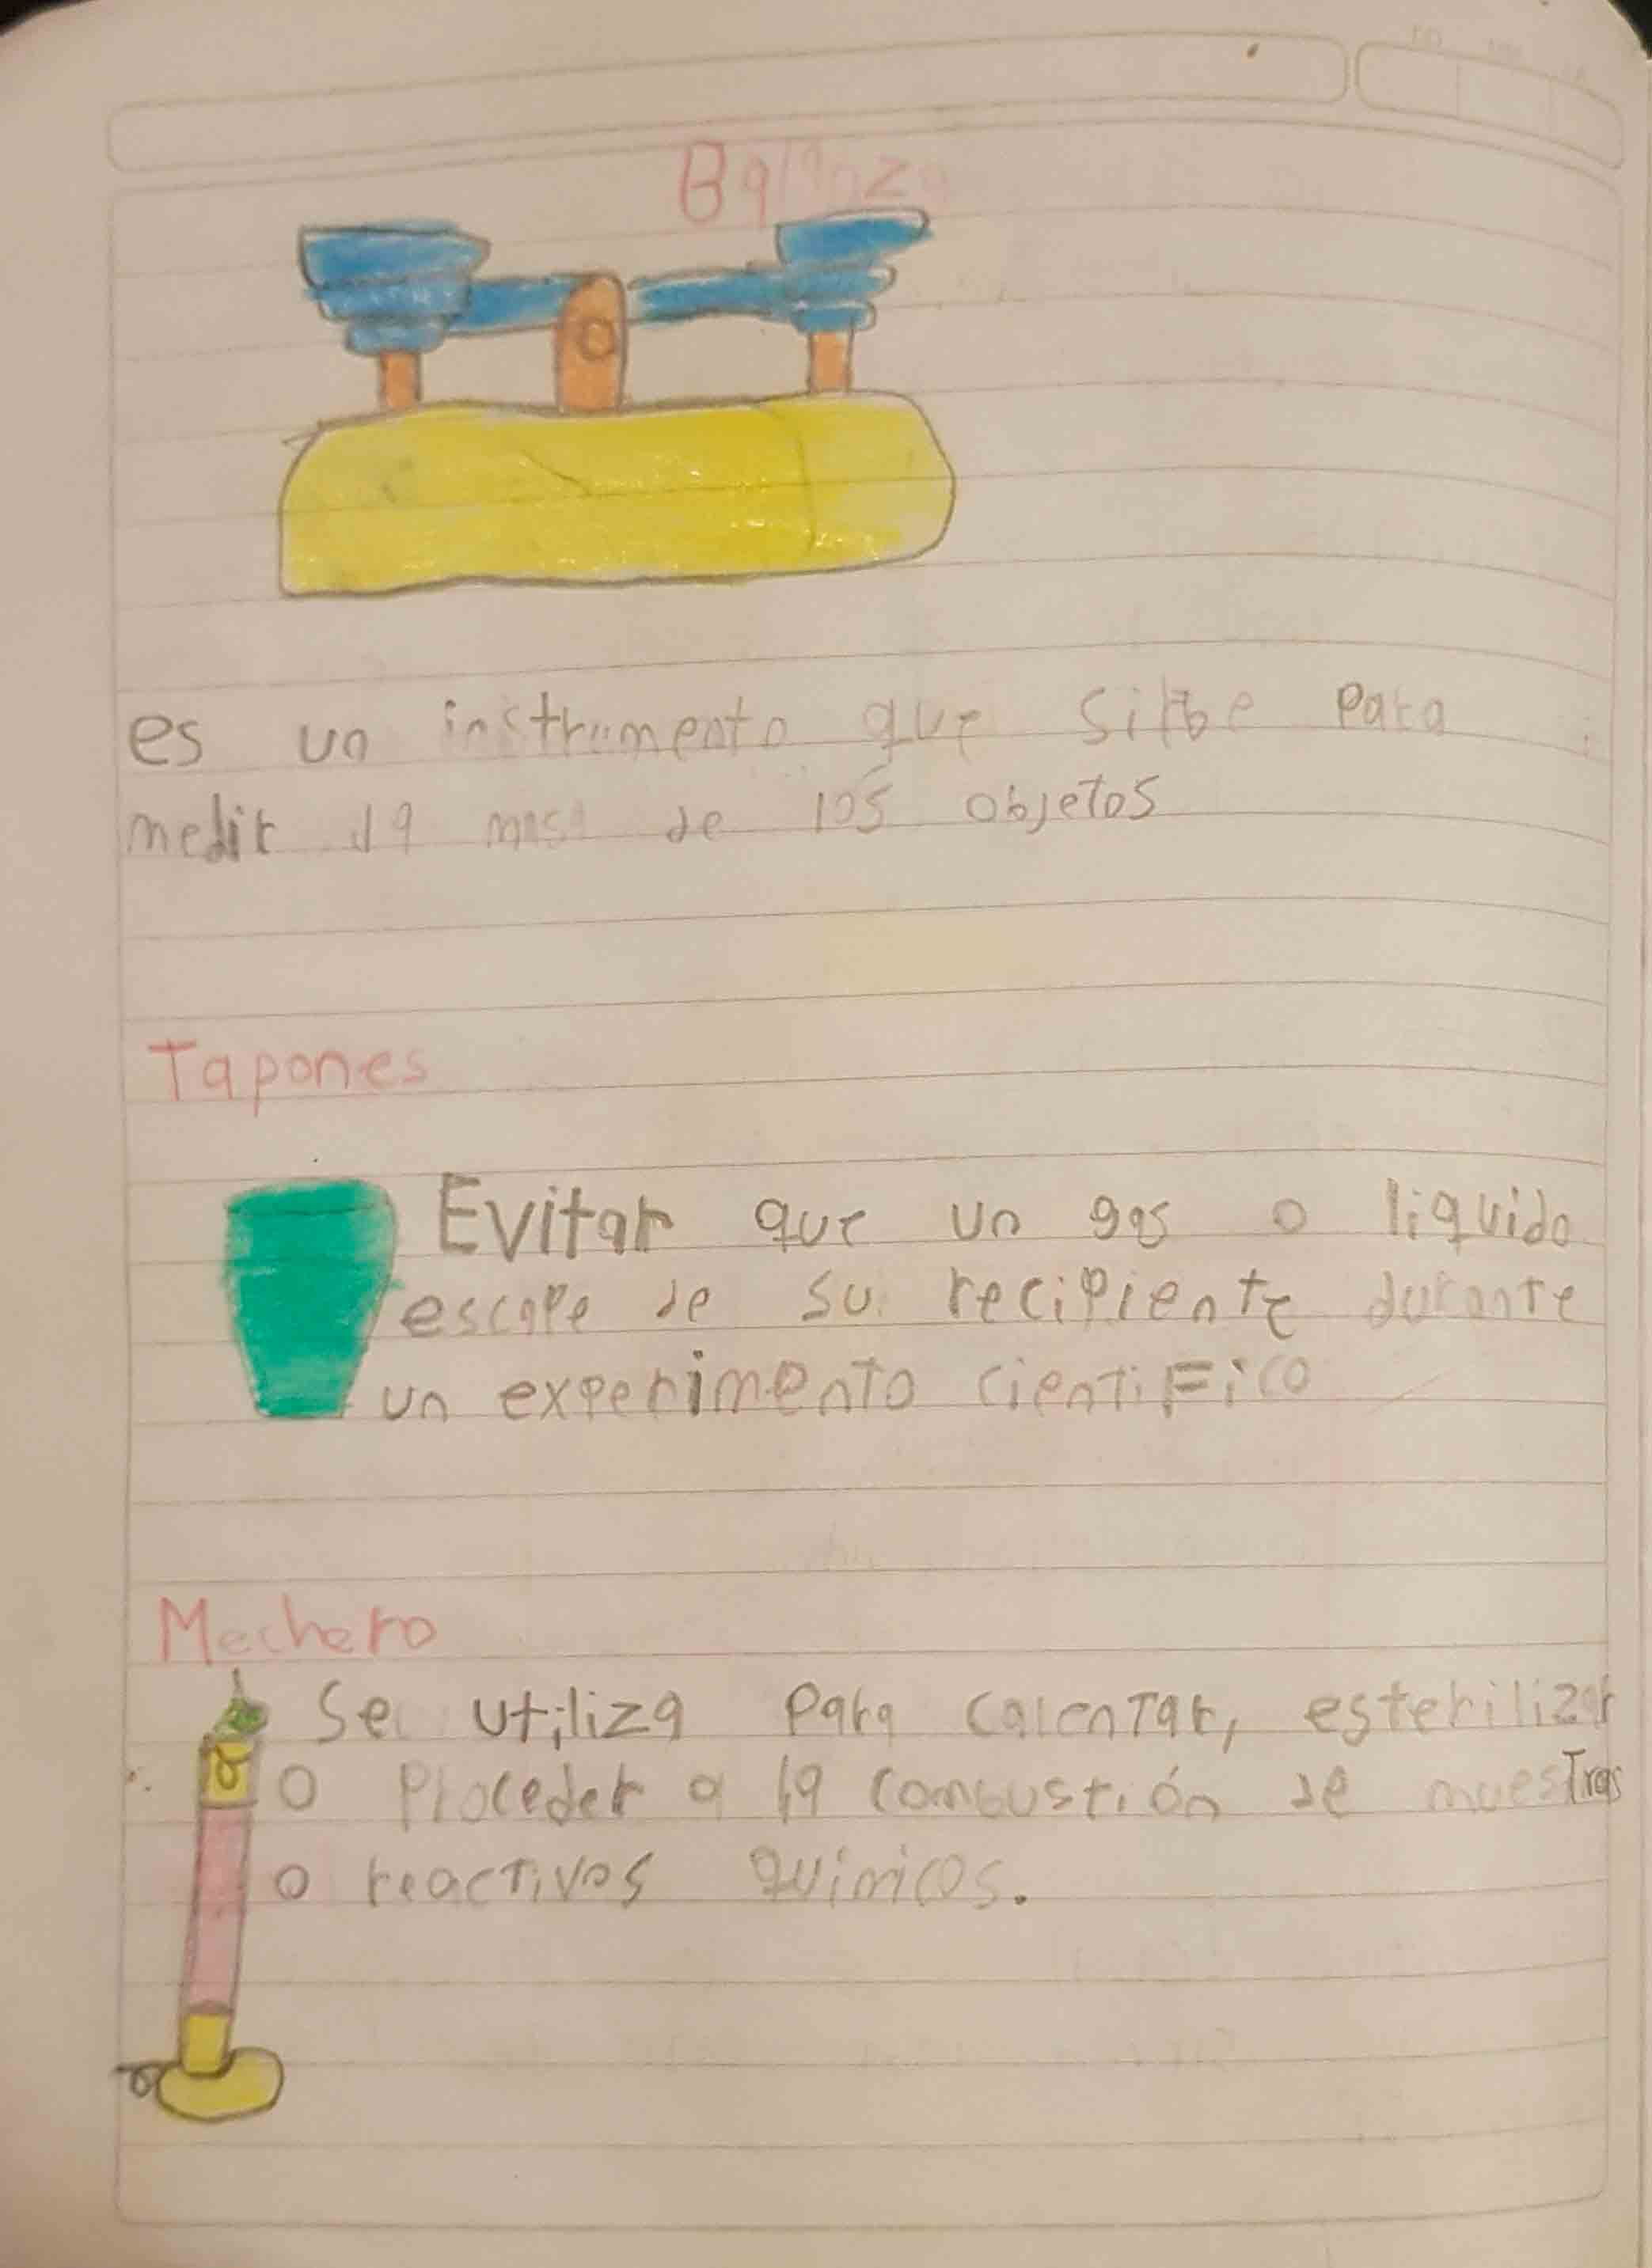 Balanza
es un instrumento que sirbe para
medir la masa de los objetos
Tapones
Evitar que un gas o liquido
escape de su recipiente durante
un experimento cientifico
Mechero
Se utiliza para calentar, esterilizar
o proceder a la combustión de muestras
o reactivos químicos.